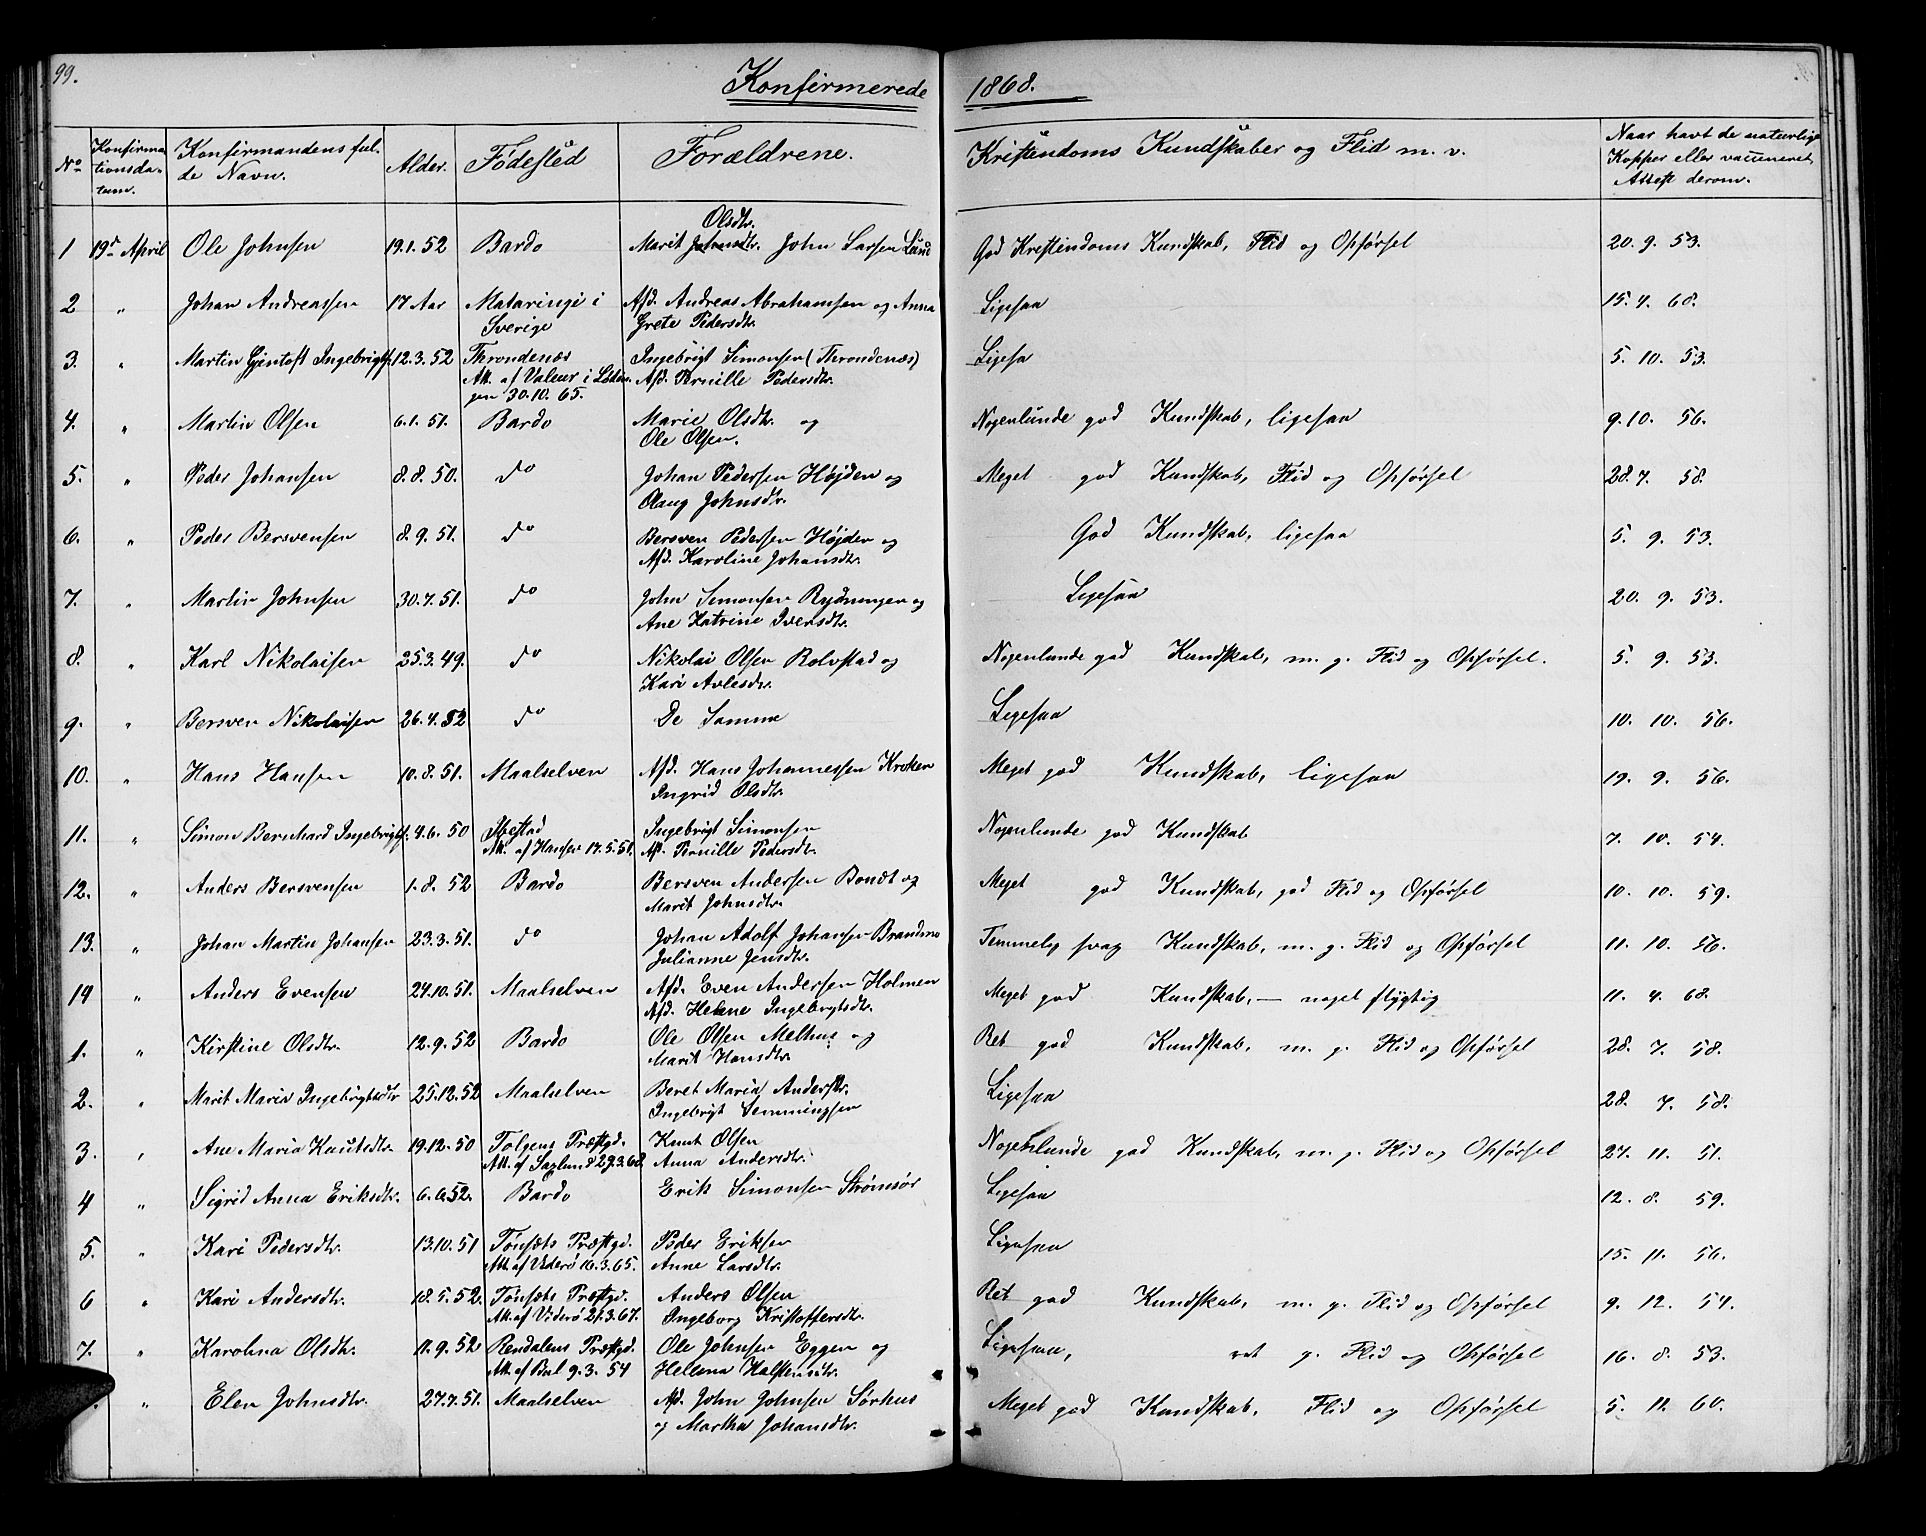 99.
Konfirmerede 1868.
No Konfirmationsdatum. Konfirmandens fulde Navn. Alder. Fødested Forældrene. Kristendoms Kundskaber og Flid m. v. Naar havt de naturlige Kopper eller vaccineret, Attest derom.
1 19de April Ole Johnsen 19.1.52 Bardo Marit Johnsdtr. Olsdtr. John Larsen Lund God Kristendoms Kundskab, Flid og Opførsel 20. 9. 53.
2 " Johan Andreassen 17 Aar Mataringi i Sverige Afd. Andreas Abrahamsen og Anna Grete Pedersdtr. Ligesaa 15. 4. 68.
3. " Martin Gjentoft Ingebrigts. 12.3.52 Throndenæs Att. af Valeur i 30.10.65. Ingebrigt Simonsen (Throndenæs) Afd. Pernille Pedersdtr. Ligesa 5. 10. 53.
4. " Martin Olsen 6.1.51. Bardo Marie Olsdtr. og Ole Olsen. Nogenlunde god Kundskab, ligesaa 9. 10. 56.
5. " Peder Johansen 8.8.50. do Johan Pedersen Højden og Olaug Johnsdtr. Meget god Kundskab, Flid og Opførsel 28. 7. 58.
6. " Peder Bersvensen 8.9.51. do Bersven Pedersen Højden og Afd. Karoline Johansdtr. God Kundskab, ligesaa 5. 9. 53.
7. " Martin Johnsen 30.7.51. do John Simonsen Rydningen og Ane Katrine Iversdtr. Ligesaa 20. 9. 53.
8. " Karl Nikolaisen 25.3.49. do Nikolai Olsen Rolvstad og Kari Avlesdtr. Nogenlunde god Kundskab, m. g. Flid og Opførsel. 5. 9. 53.
9. " Bersven Nikolaisen 26.4.52 do De Samme Ligesaa 10. 10. 56.
10. " Hans Hansen 10.8.51. Maalselven Afd. Hans Johannessen Kroken Ingrid Olsdtr. Meget god Kundskab, ligesaa 19. 9. 56.
11. " Simon Bernhard Ingebrigts. 4.6.50 Ibestad Att. af Hansen 17.5.51. Ingebrigt Simonsen Afd. Pernille Pedersdtr. Nogenlunde god Kundskab 7. 10. 54.
12. " Anders Bersvensen 1.8.52 Bardo Bersven Andersen Bondt og Marit Johnsdtr. Meget god Kundskab, god Flid og Opførsel 10. 10. 59.
13. " Johan Martin Johansen 23.3.51. do Johan Adolf Johansen Brandmo Julianne Jensdtr. Temmelig svag Kundskab, m. g. Flid og Opførsel 11. 10. 56.
14 " Anders Evensen 24.10.51. Maalselven Afd. Even Andersen Holmen Afd. Helene Ingebrigtsdtr. Meget god Kundskab, — noget flygtig 11. 4. 68.
1. " Kirstine Olsdtr. 12.9.52 Bardo Ole Olsen Melhus og Marit Hansdtr. Ret god Kundskab, m. g. Flid og Opførsel 28. 7. 58.
2. " Marit Maria Ingebrigtsdtr 25.12.52 Maalselven Beret Maria Andersdtr. Ingebrigt Semmingsen Ligesaa 28. 7. 58.
3. " Ane Maria Knutsdtr. 19.12.50 Tolgens Præstgd. Att. af 29.3.62 Knut Olsen Anna Andersdtr. Nogenlunde god Kundskab, m. g. Flid og Opførsel 27. 11. 51.
4 " Sigrid Anna Eriksdtr. 6.6.52. Bardo Erik Simonsen Strømsør Ligesaa 12. 8. 59.
5. " Kari Pedersdtr. 13.10.51 Tønsets Præstgd. Att. af Viderø 16.3.65. Peder Eriksen Anne Larsdtr. Ligesaa 15. 11. 56.
6 " Kari Andersdtr. 18.5.52. Tønsets Præstgd. Att. af Viderø 21.3.67. Anders Olsen Ingeborg Kristoffersdtr. Ret god Kundskab, m. g. Flid og Opførsel 9. 12. 54.
7. " Karolina Olsdtr. 11.9.52 Rendalens Præstgd. Att. af Bul 9.3.54 Ole Johnsen Eggen og Hellena Halstensdtr. Ligesaa, ret g. Flid og Opførsel 16. 8. 53.
" Elen Johnsdtr. 27.7.51. Maalselven Afd. John Johnsen Sørhus og Martha Johansdtr. Meget god Kundskab, Flid og Opførsel 5. 11. 60.